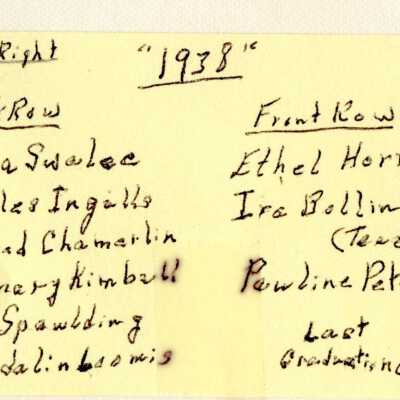 Right
"1938"
Row
a Swalee
les Ingalls
d Chamarlin
mary Kimball
Spawlding
dalin Loomis
Front Row
Ethel Hor
Ira Bollin
(Tea
Pawline Pet
Last
Graduation